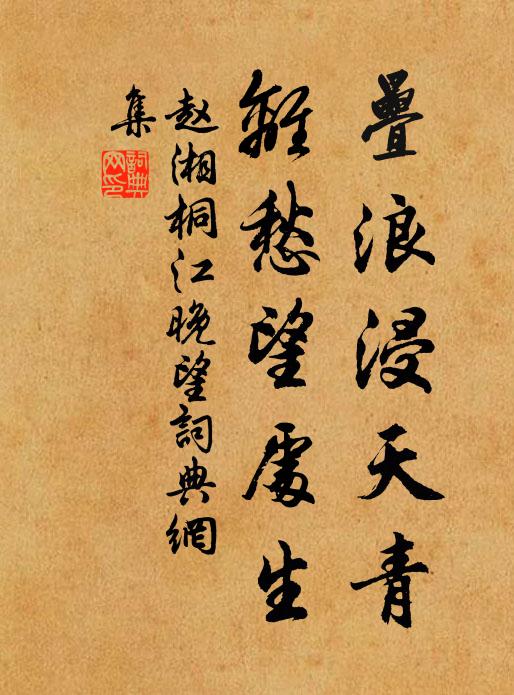 疊浪浸天青
離愁望處生
赵湘桐江晚望詞典網
集
詞典网印